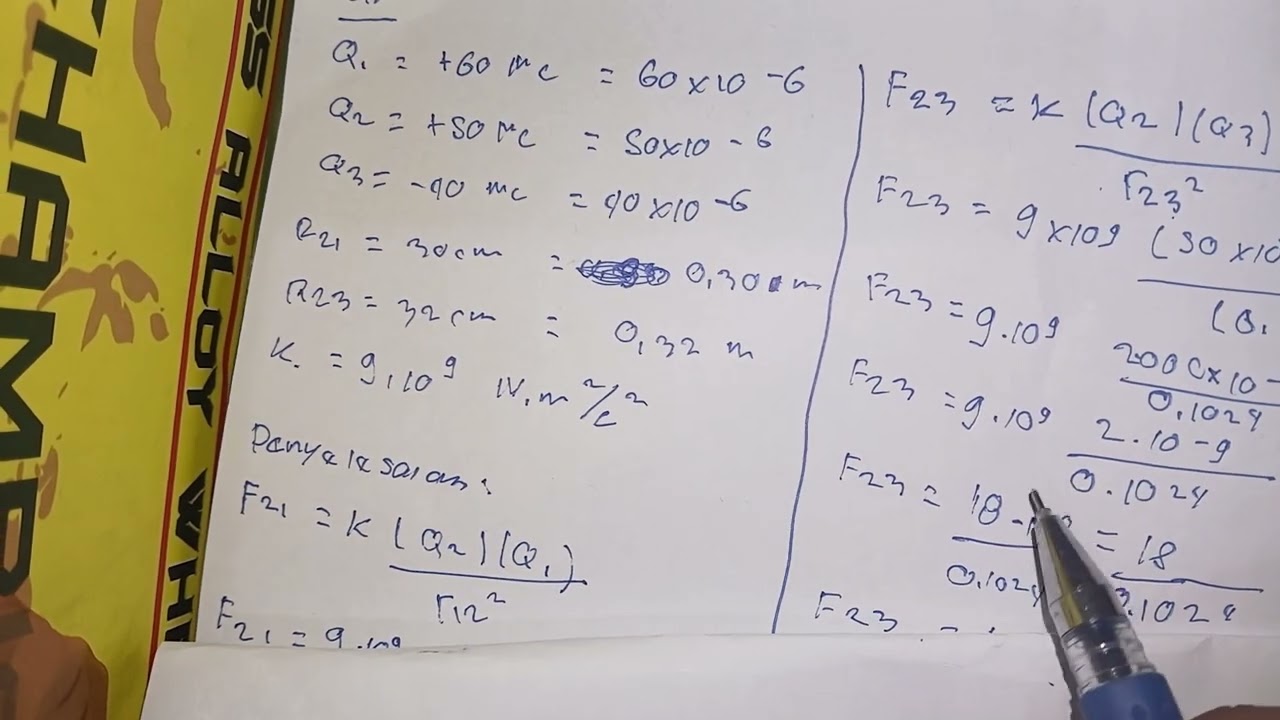 Q₁ = +60 μc = 60 x 10 -6
Q₂ = +50 μc = 50x10 - 6
Q₃ = -40 mc = 40 x 10 -6
R₂₁ = 30 cm = 0,30 m
R₂₃ = 32 cm = 0,32 m
K. = 9,10⁹ N.m²/c²
Penyelesaian:
F₂₁ = K (Q₂)(Q₁)
r₁₂²
F₂₁ = 9.10⁹
F₂₃ = K (Q₂)(Q₃)
r₂₃²
F₂₃ = 9x10⁹ (50 x 10
(0.
F₂₃ = 9.10⁹ 2000x10-
0.1024
F₂₃ = 9.10⁹ 2.10-9
0.1024
F₂₃ = 18 = 18
0.1024 0.1024
F₂₃
ALLOY